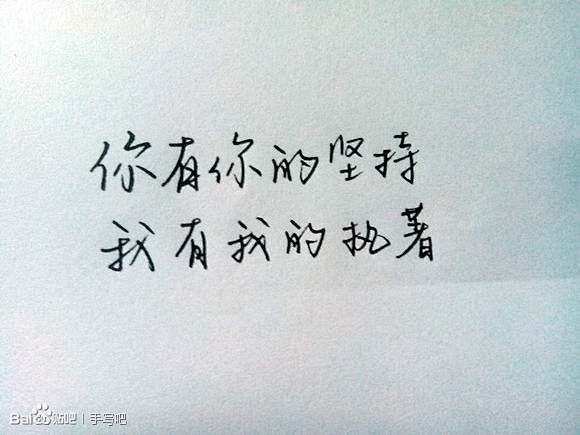 你有你的坚持
我有我的执著
Bai贴吧 | 手写吧